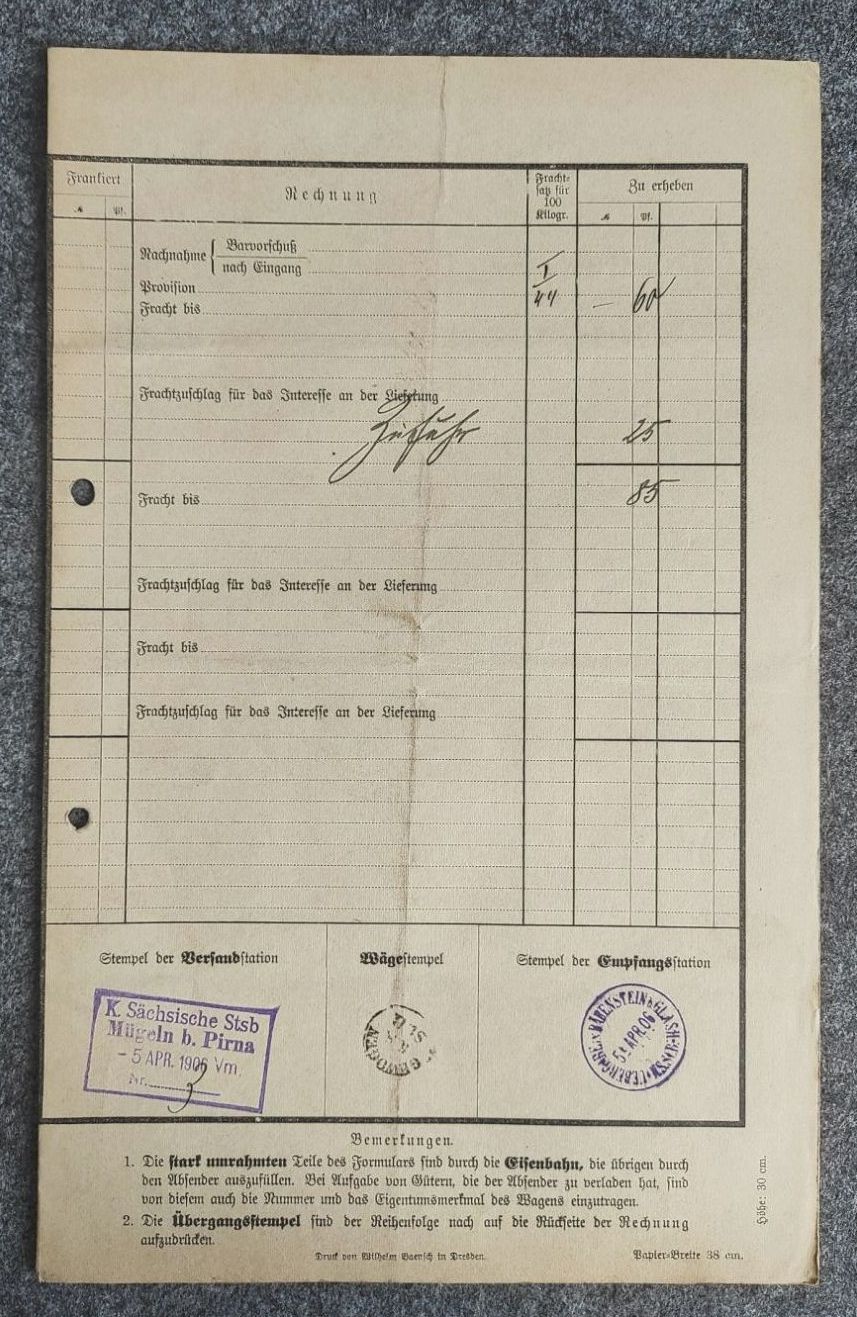 Frankiert
Rechnung
Fracht-
satz für
100
Kilogr.
Zu erheben
ℳ Pf.
ℳ Pf.
Nachnahme { Barvorschuß
nach Eingang
Provision
I
44
Fracht bis
— 60
Frachtzuschlag für das Interesse an der Lieferung
Zufuhr 25
Fracht bis
85
Frachtzuschlag für das Interesse an der Lieferung
Fracht bis
Frachtzuschlag für das Interesse an der Lieferung
Stempel der Versandstation
Wägestempel
Stempel der Empfangsstation
K. Sächsische Stsb
Mügeln b. Pirna
- 5 APR. 1906 Vm.
Nr. 3
GEWOGEN
BÄRENSTEIN
5 APR. 06
Bemerkungen.
1. Die stark umrahmten Teile des Formulars sind durch die Eisenbahn, die übrigen durch
den Absender auszufüllen. Bei Aufgabe von Gütern, die der Absender zu verladen hat, sind
von diesem auch die Nummer und das Eigentumsmerkmal des Wagens einzutragen.
2. Die Übergangsstempel sind der Reihenfolge nach auf die Rückseite der Rechnung
aufzudrücken.
Druck von Wilhelm Baensch in Dresden.
Papier-Breite 38 cm.
Höhe: 30 cm.